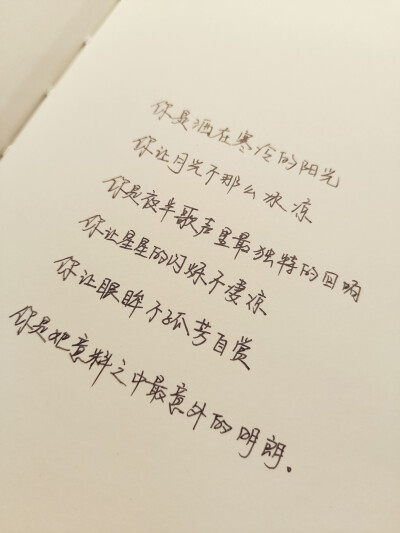 你是洒在寒冷的阳光
你让月光不那么冰凉
你是夜半歌声里最独特的回响
你让星星的闪烁不凄凉
你让眼眸不孤芳自赏
你是把意料之中最意外的明朗.